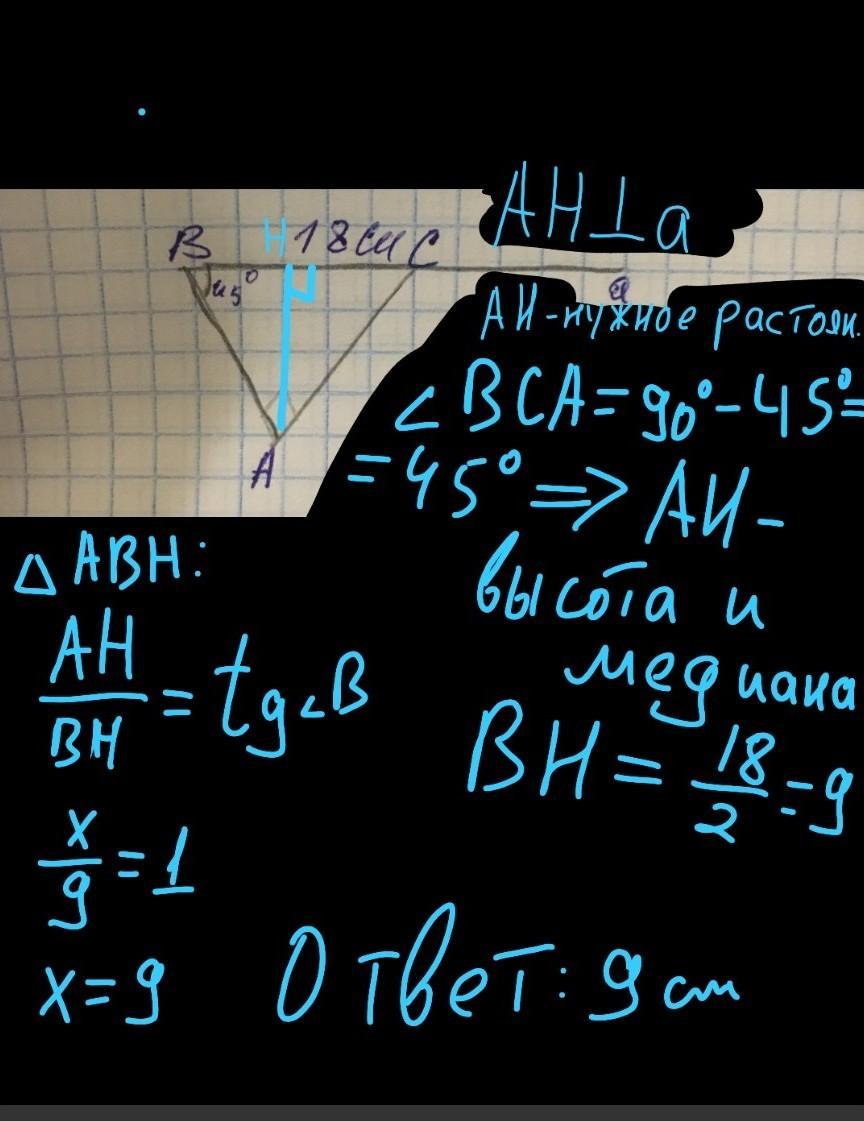 AH⊥a
B H 18 см C
45°
a
A
АН-нужное растоян.
∠BCA=90°-45°=
=45°⇒АН-
высота и
медиана
BH=18/2=9
△ABH:
AH/BH=tg∠B
x/9=1
x=9
Ответ: 9 см